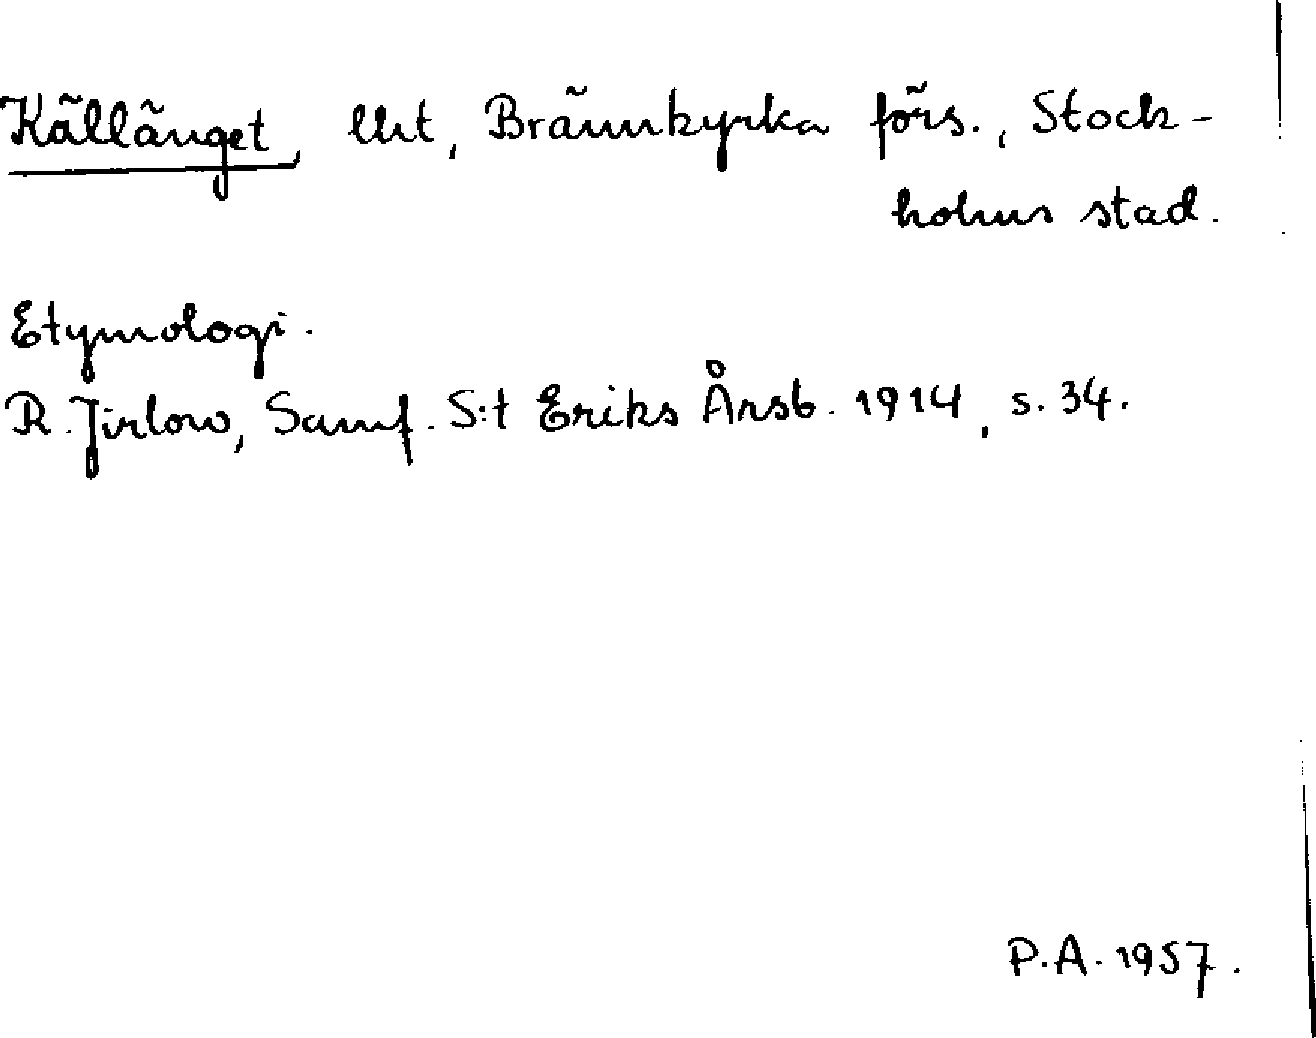 Källänget, lht, Brännkyrka förs., Stock-
holms stad.
Etymologi.
R. Jirlow, Samf. S:t Eriks Årsb. 1914, s. 34.
P.A. 1957.